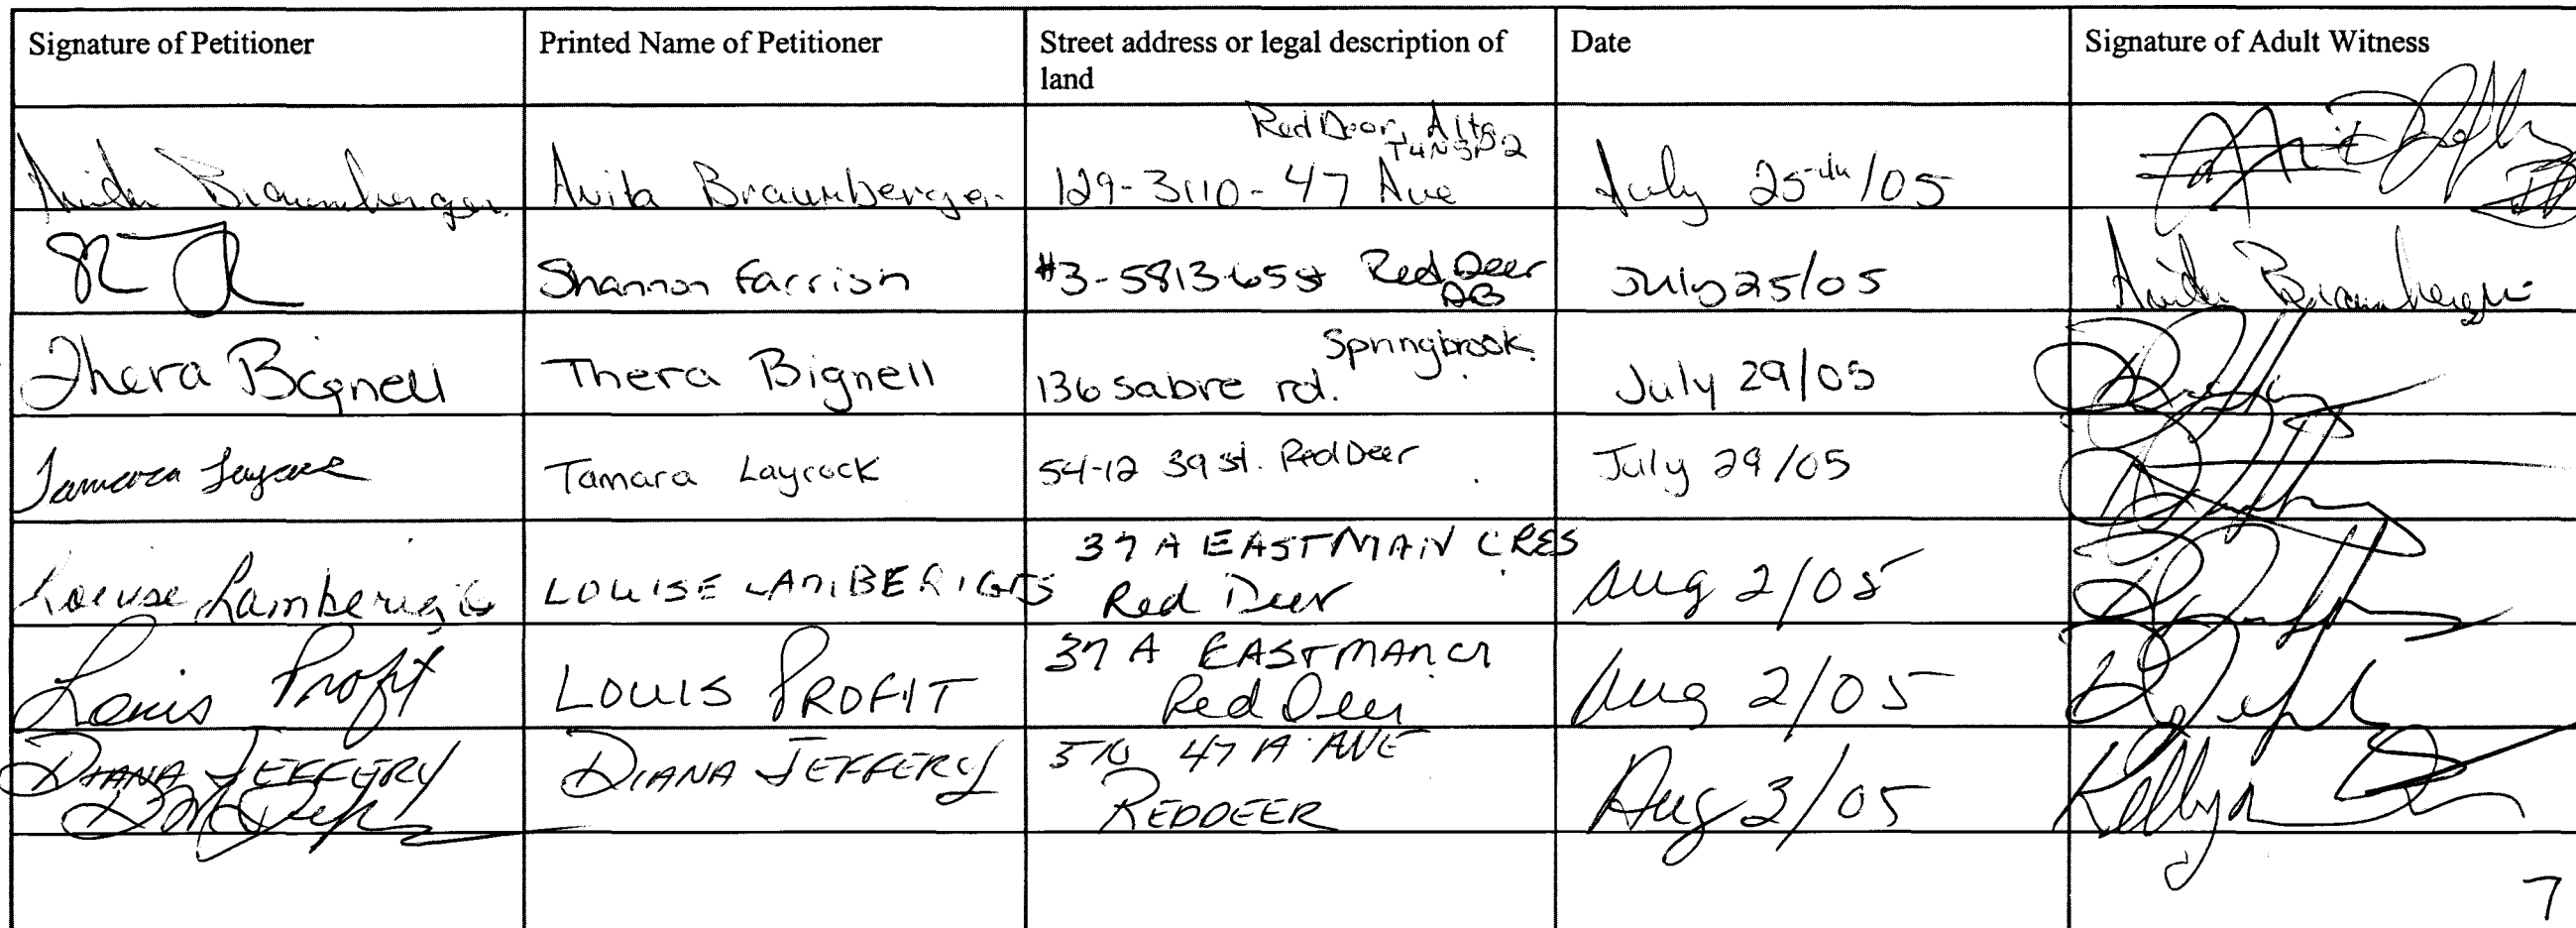 Signature of Petitioner
Printed Name of Petitioner
Street address or legal description of
land
Date
Signature of Adult Witness
Anita Braumberger
Anita Braumberger
Red Deer, Alta
129-3110-47 Ave
July 25th/05
Shannon Farrish
#3-5813-65st Red Deer
AB
July 25/05
Anita Braumberger
Thera Bignell
Thera Bignell
Springbrook
136 Sabre rd.
July 29/05
Tamara Laycock
Tamara Laycock
54-12 39 st. Red Deer
July 29/05
Louise Lamberigts
LOUISE LAMBERIGTS
37 A EASTMAN CRES
Red Deer
Aug 2/05
Louis Profit
LOUIS PROFIT
37 A EASTMAN CR
Red Deer
Aug 2/05
DIANA JEFFERY
DIANA JEFFERY
47 A AVE
REDDEER
Aug 3/05
7